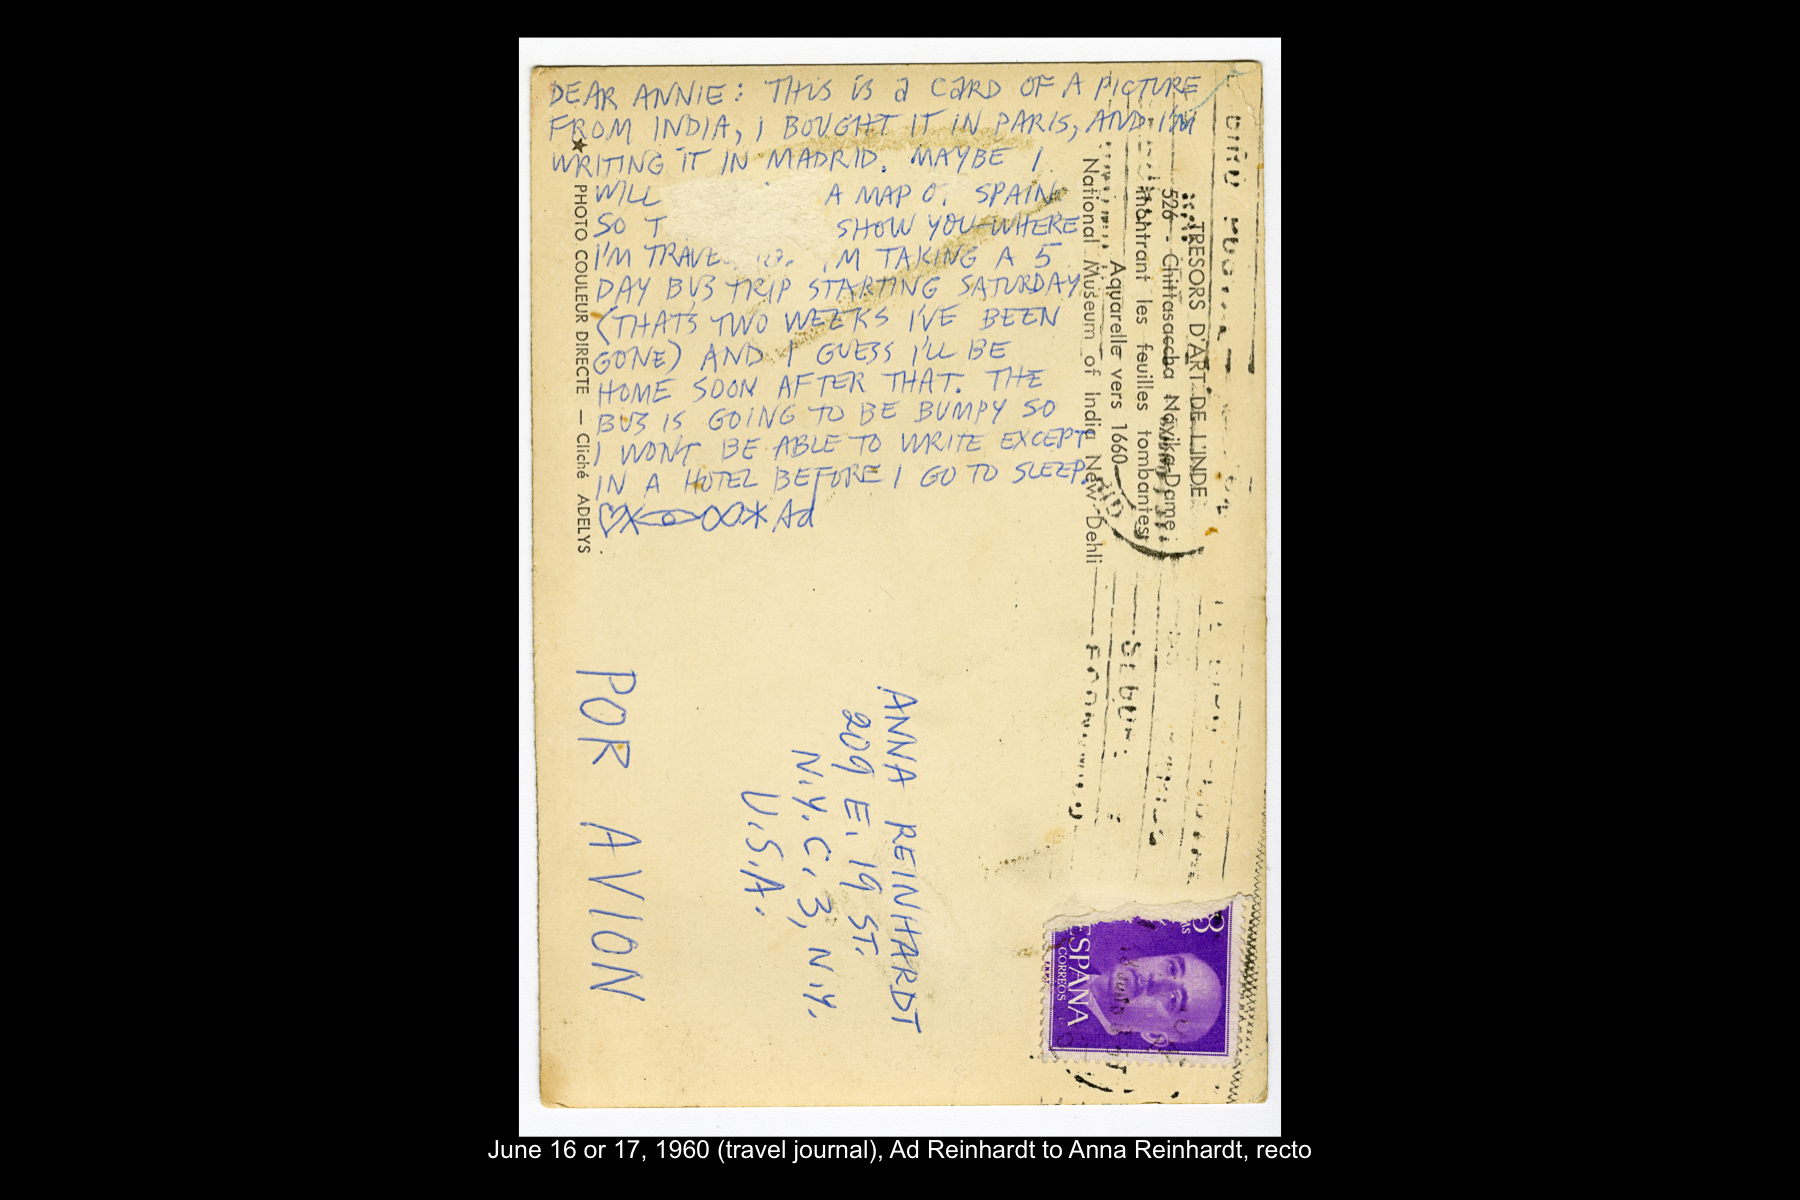 DEAR ANNIE: THIS IS A CARD OF A PICTURE
FROM INDIA, I BOUGHT IT IN PARIS, AND I'M
WRITING IT IN MADRID. MAYBE I
WILL A MAP O. SPAIN
SO T SHOW YOU WHERE
I'M TRAVE I'M TAKING A 5
DAY BUS TRIP STARTING SATURDAY
(THAT'S TWO WEEKS I'VE BEEN
GONE) AND I GUESS I'LL BE
HOME SOON AFTER THAT. THE
BUS IS GOING TO BE BUMPY SO
I WON'T BE ABLE TO WRITE EXCEPT
IN A HOTEL BEFORE I GO TO SLEEP.
Ad
TRESORS D'ART DE L'INDE
526 - Chittasaccba Nayika-Dame
montrant les feuilles tombantes
Aquarelle vers 1660
National Museum of India New-Dehli
PHOTO COULEUR DIRECTE — Cliché ADELYS
ANNA REINHARDT
209 E. 19 ST.
N.Y.C. 3, N.Y.
U.S.A.
POR AVION
ESPAÑA
CORREOS
June 16 or 17, 1960 (travel journal), Ad Reinhardt to Anna Reinhardt, recto